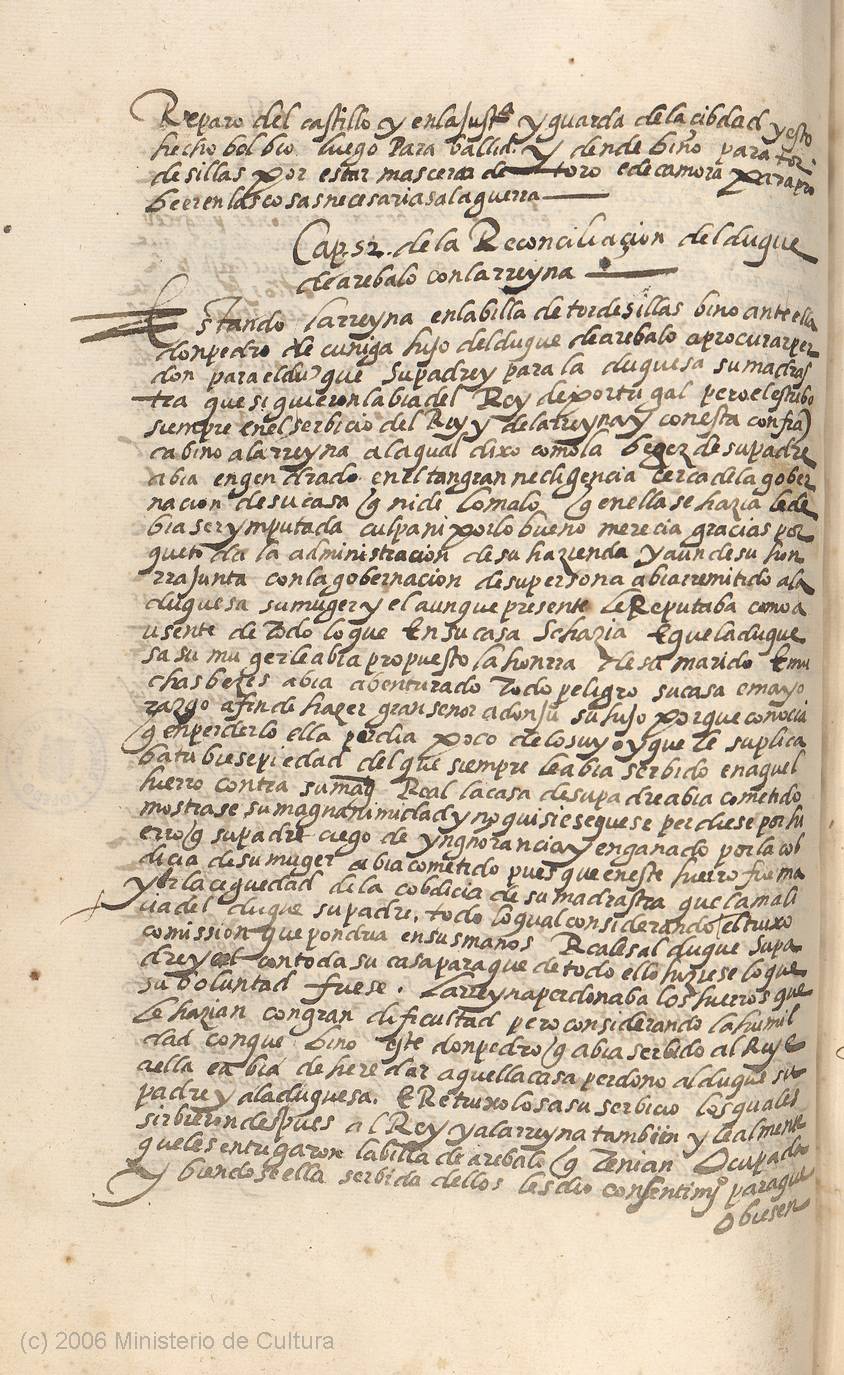 Reparo del castillo y en la just.ª y guarda de la cibdad y esto
hecho bolbio luego Para Vallid. y dende bino para tor
desillas por estar mas cerca de toro e de camora para pro
beer en las cosas necesarias a la guerra
Cap. 52. de la Reconciliaçion del duque
de arebalo con la rreyna
Estando la rreyna en la billa de tordesillas bino ante ella
don pedro de cuniga hijo del duque de arebalo a procurar per
don para el duque Su padre y para la duquesa su madras
tra que siguieron la bia del Rey de portugal pero el estubo
siempre en el serbicio del Rey y de la rreyna y con esta confiā
ca bino a la rreyna a la qual dixo como la begez de su padre
abia engendrado en el tan gran necligencia cerca de la gober
nacion de su casa q ni de lo malo q en ella se hazia le de
bia ser ymputada culpa ni por lo bueno merecia gracias por
que toda la administracion de su hazienda y aun de su hon
rra junta con la gobernacion de su persona abia rremitido a la
duquesa su muger y el aunque presente le Reputaba como a
usente de todo lo que En su casa Se hazia E que la duque
sa su muger le abia propuesto la honrra de sa marido E mu
chas bezes abia abenturado todo peligro su casa e mayo
razgo a fin de hazer gran senor a don ju su hijo porque conocia
q en perderlo ella perdia poco de lo suyo y que le suplica
ba tubiese piedad del que siempre le abia serbido en aquel
hierro contra su mag Real la casa de su padre abia cometido
mostrase su magnanimidad y no quisiese que se perdiese por hi
erro q su padre ciego de yngnorancia y enganado por la cob
dicia de su muger abia cometido pues que en este hierro fue ma
yor la ceguedad de la cobdicia de su madrastra que la mali
cia del duque su padre, todo lo qual considerando el truxo
comission que pondria en sus manos Reales al duque Supa
dre y el con toda su casa para que de todo ello hiziese lo que
su boluntad fuese. La rreyna perdonaba los hierros que
le hazian con gran dificultad pero considerando la humil
dad con que bino este don pedro q abia serbido al Rey E
a ella e abia de heredar aquella casa perdono al duque su
padre y a la duquesa. E Retruxolos a su serbicio los quales
sirbieron despues al Rey y a la rreyna tambien y lealmente
que les entregaron la billa de arebalo q tenian Ocupada
y biendose ella serbida dellos les dio consentimº para que
Obiesen
(c) 2006 Ministerio de Cultura